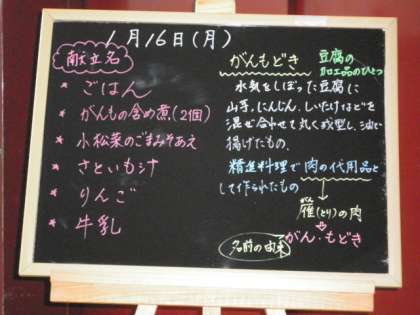 1月16日(月)
献立名
* ごはん
* がんもの含め煮(2個)
* 小松菜のごまみそあえ
* さといも汁
* りんご
* 牛乳
がんもどき 豆腐の
加工品のひとつ
水気をしぼった豆腐に
山芋、にんじん、しいたけなどを
混ぜ合わせて丸く成型し、油で
揚げたもの。
精進料理で肉の代用品と
して作られたもの
がん
雁(とり)の肉
がん・もどき
名前の由来